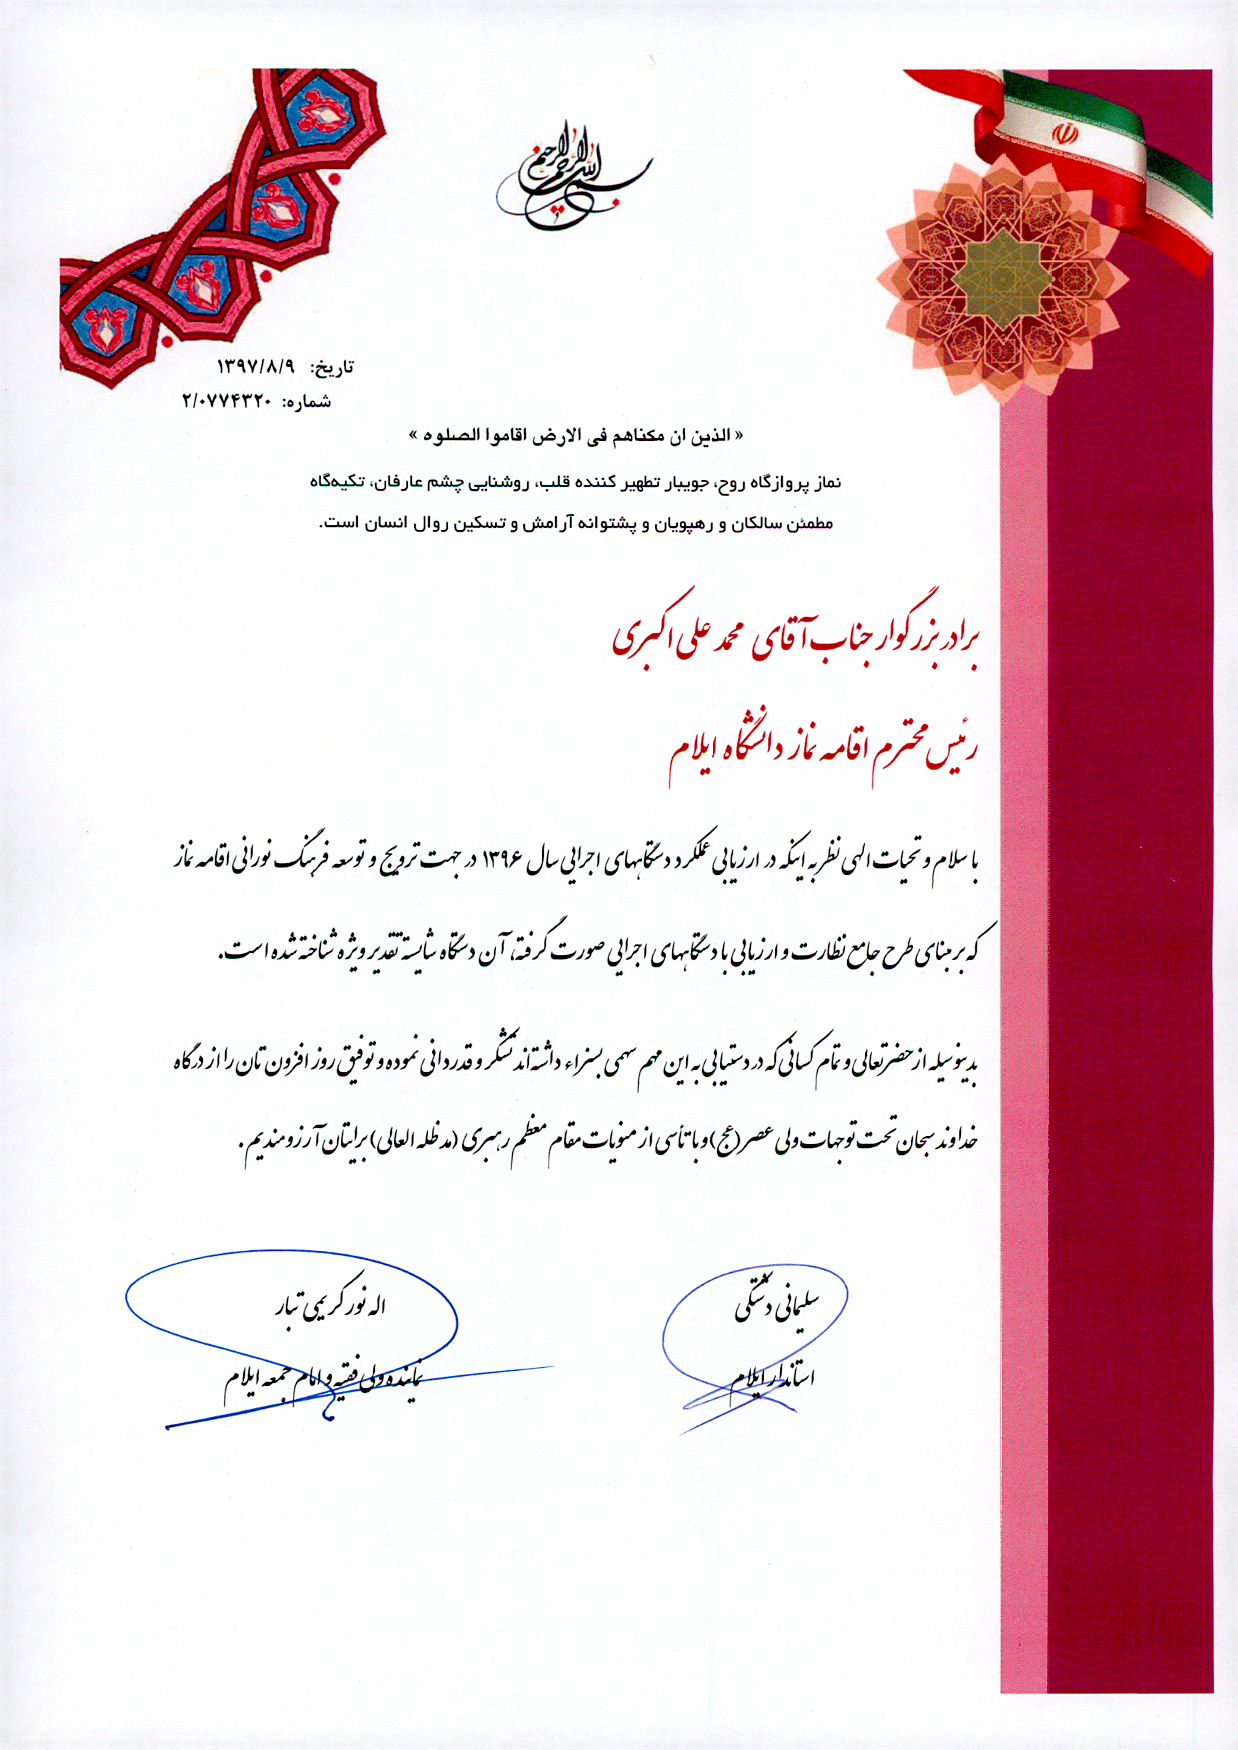 بسم الله الرحمن الرحیم
تاریخ: ۱۳۹۷/۸/۹
شماره: ۲/۰۷۷۴۳۲۰
« الذین ان مکناهم فی الارض اقاموا الصلوه »
نماز پروازگاه روح، جویبار تطهیر کننده قلب، روشنایی چشم عارفان، تکیه‌گاه
مطمئن سالکان و رهپویان و پشتوانه آرامش و تسکین روال انسان است.
برادر بزرگوار جناب آقای محمد علی اکبری
رئیس محترم اقامه نماز دانشگاه ایلام
با سلام و تحیات الهی نظر به اینکه در ارزیابی عملکرد دستگاههای اجرایی سال ۱۳۹۶ در جهت ترویج و توسعه فرهنگ نورانی اقامه نماز
که بر مبنای طرح جامع نظارت و ارزیابی با دستگاههای اجرایی صورت گرفته، آن دستگاه شایسته تقدیر ویژه شناخته شده است.
بدینوسیله از حضرتعالی و تمام کسانی که در دستیابی به این مهم سهمی بسزاء داشته‌اند تشکر و قدردانی نموده و توفیق روز افزون تان را از درگاه
خداوند سبحان تحت توجهات ولی عصر (عج) و با تأسی از منویات مقام معظم رهبری (مد ظله العالی) برایتان آرزومندیم .
سلیمانی دشتکی
استاندار ایلام
اله نور کریمی تبار
نماینده ولی فقیه و امام جمعه ایلام